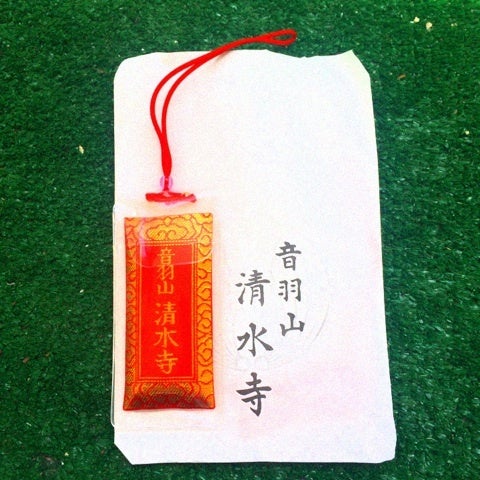 音羽山
清水寺
音羽山 清水寺